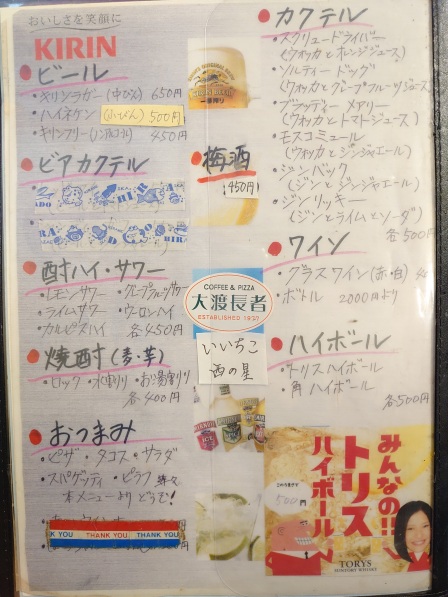 おいしさを笑顔に
KIRIN
ビール
・キリンラガー(中びん) 650円
・ハイネケン(小びん) 500円
・キリンフリー(ノンアルコール) 450円
ビアカクテル
酎ハイ・サワー
・レモンサワー ・グレープフルーツサワー
・ライムサワー ・ウーロンハイ
・カルピスハイ 各450円
焼酎(麦・芋)
・ロック・水割り・お湯割り
各400円
おつまみ
・ピザ ・タコス ・サラダ
・スパゲッティ ・ピラフ 等々
本メニューよりどうぞ!
K YOU THANK YOU. THANK YOU.
一番搾り
梅酒
450円
COFFEE & PIZZA
大渡長者
ESTABLISHED 1937
いいちこ
西の星
カクテル
・スクリュードライバー
(ウォッカとオレンジジュース)
・ソルティードッグ
(ウォッカとグレープフルーツジュース)
・ブラッディーメアリー
(ウォッカとトマトジュース)
・モスコミュール
(ウォッカとジンジャエール)
・ジンバック
(ジンとジンジャエール)
・ジンリッキー
(ジンとライムとソーダ)
各500円
ワイン
・グラスワイン(赤・白)
・ボトル 2000円より
ハイボール
・トリスハイボール
・角ハイボール
各500円
みんなの!!
トリス
ハイボール
500円
TORYS